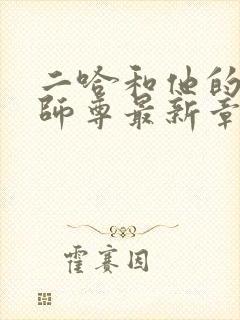 二哈和他的
师尊最新章
霍赛因